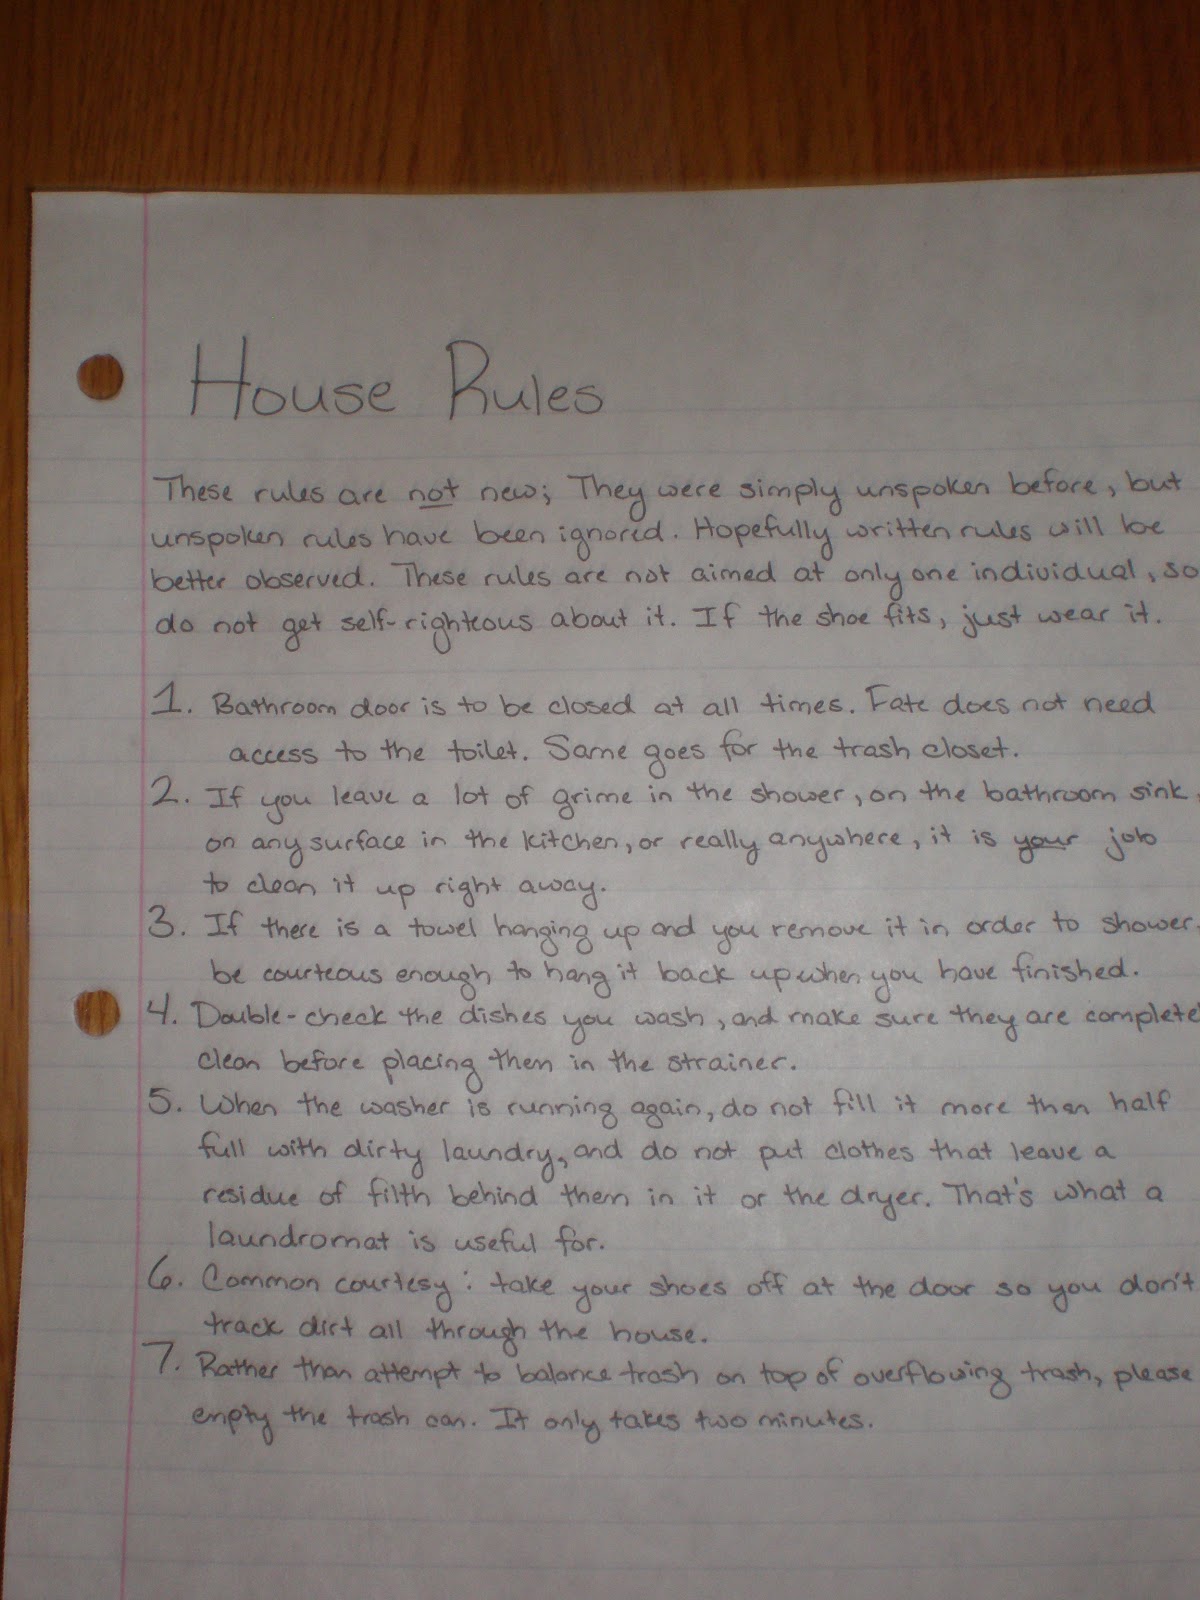 House Rules
These rules are not new; They were simply unspoken before, but
unspoken rules have been ignored. Hopefully written rules will be
better observed. These rules are not aimed at only one individual, so
do not get self-righteous about it. If the shoe fits, just wear it.
1. Bathroom door is to be closed at all times. Fate does not need
access to the toilet. Same goes for the trash closet.
2. If you leave a lot of grime in the shower, on the bathroom sink,
on any surface in the kitchen, or really anywhere, it is your job
to clean it up right away.
3. If there is a towel hanging up and you remove it in order to shower,
be courteous enough to hang it back up when you have finished.
4. Double-check the dishes you wash, and make sure they are complete
clean before placing them in the strainer.
5. When the washer is running again, do not fill it more than half
full with dirty laundry, and do not put clothes that leave a
residue of filth behind them in it or the dryer. That's what a
laundromat is useful for.
6. Common courtesy: take your shoes off at the door so you don't
track dirt all through the house.
7. Rather than attempt to balance trash on top of overflowing trash, please
empty the trash can. It only takes two minutes.